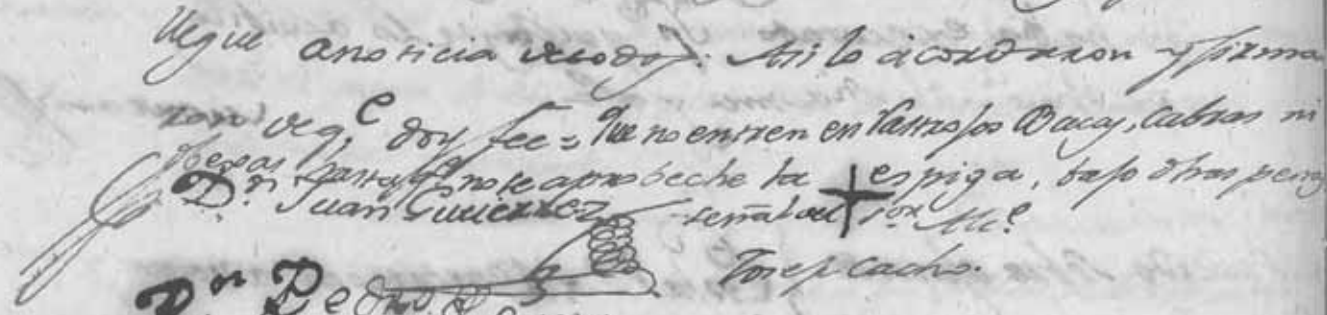 llegue a noticia de todos. Asi lo acordaron y firma
ron de q.e doy fee = Que no entren en rastrojos Bacas, Cabras ni
obejas hasta q.e no se aprobeche la espiga, bajo dhas penas
D.n Juan Gutierrez señal del + s.or Alc.e
Josep Cacho.
D.n Pedro